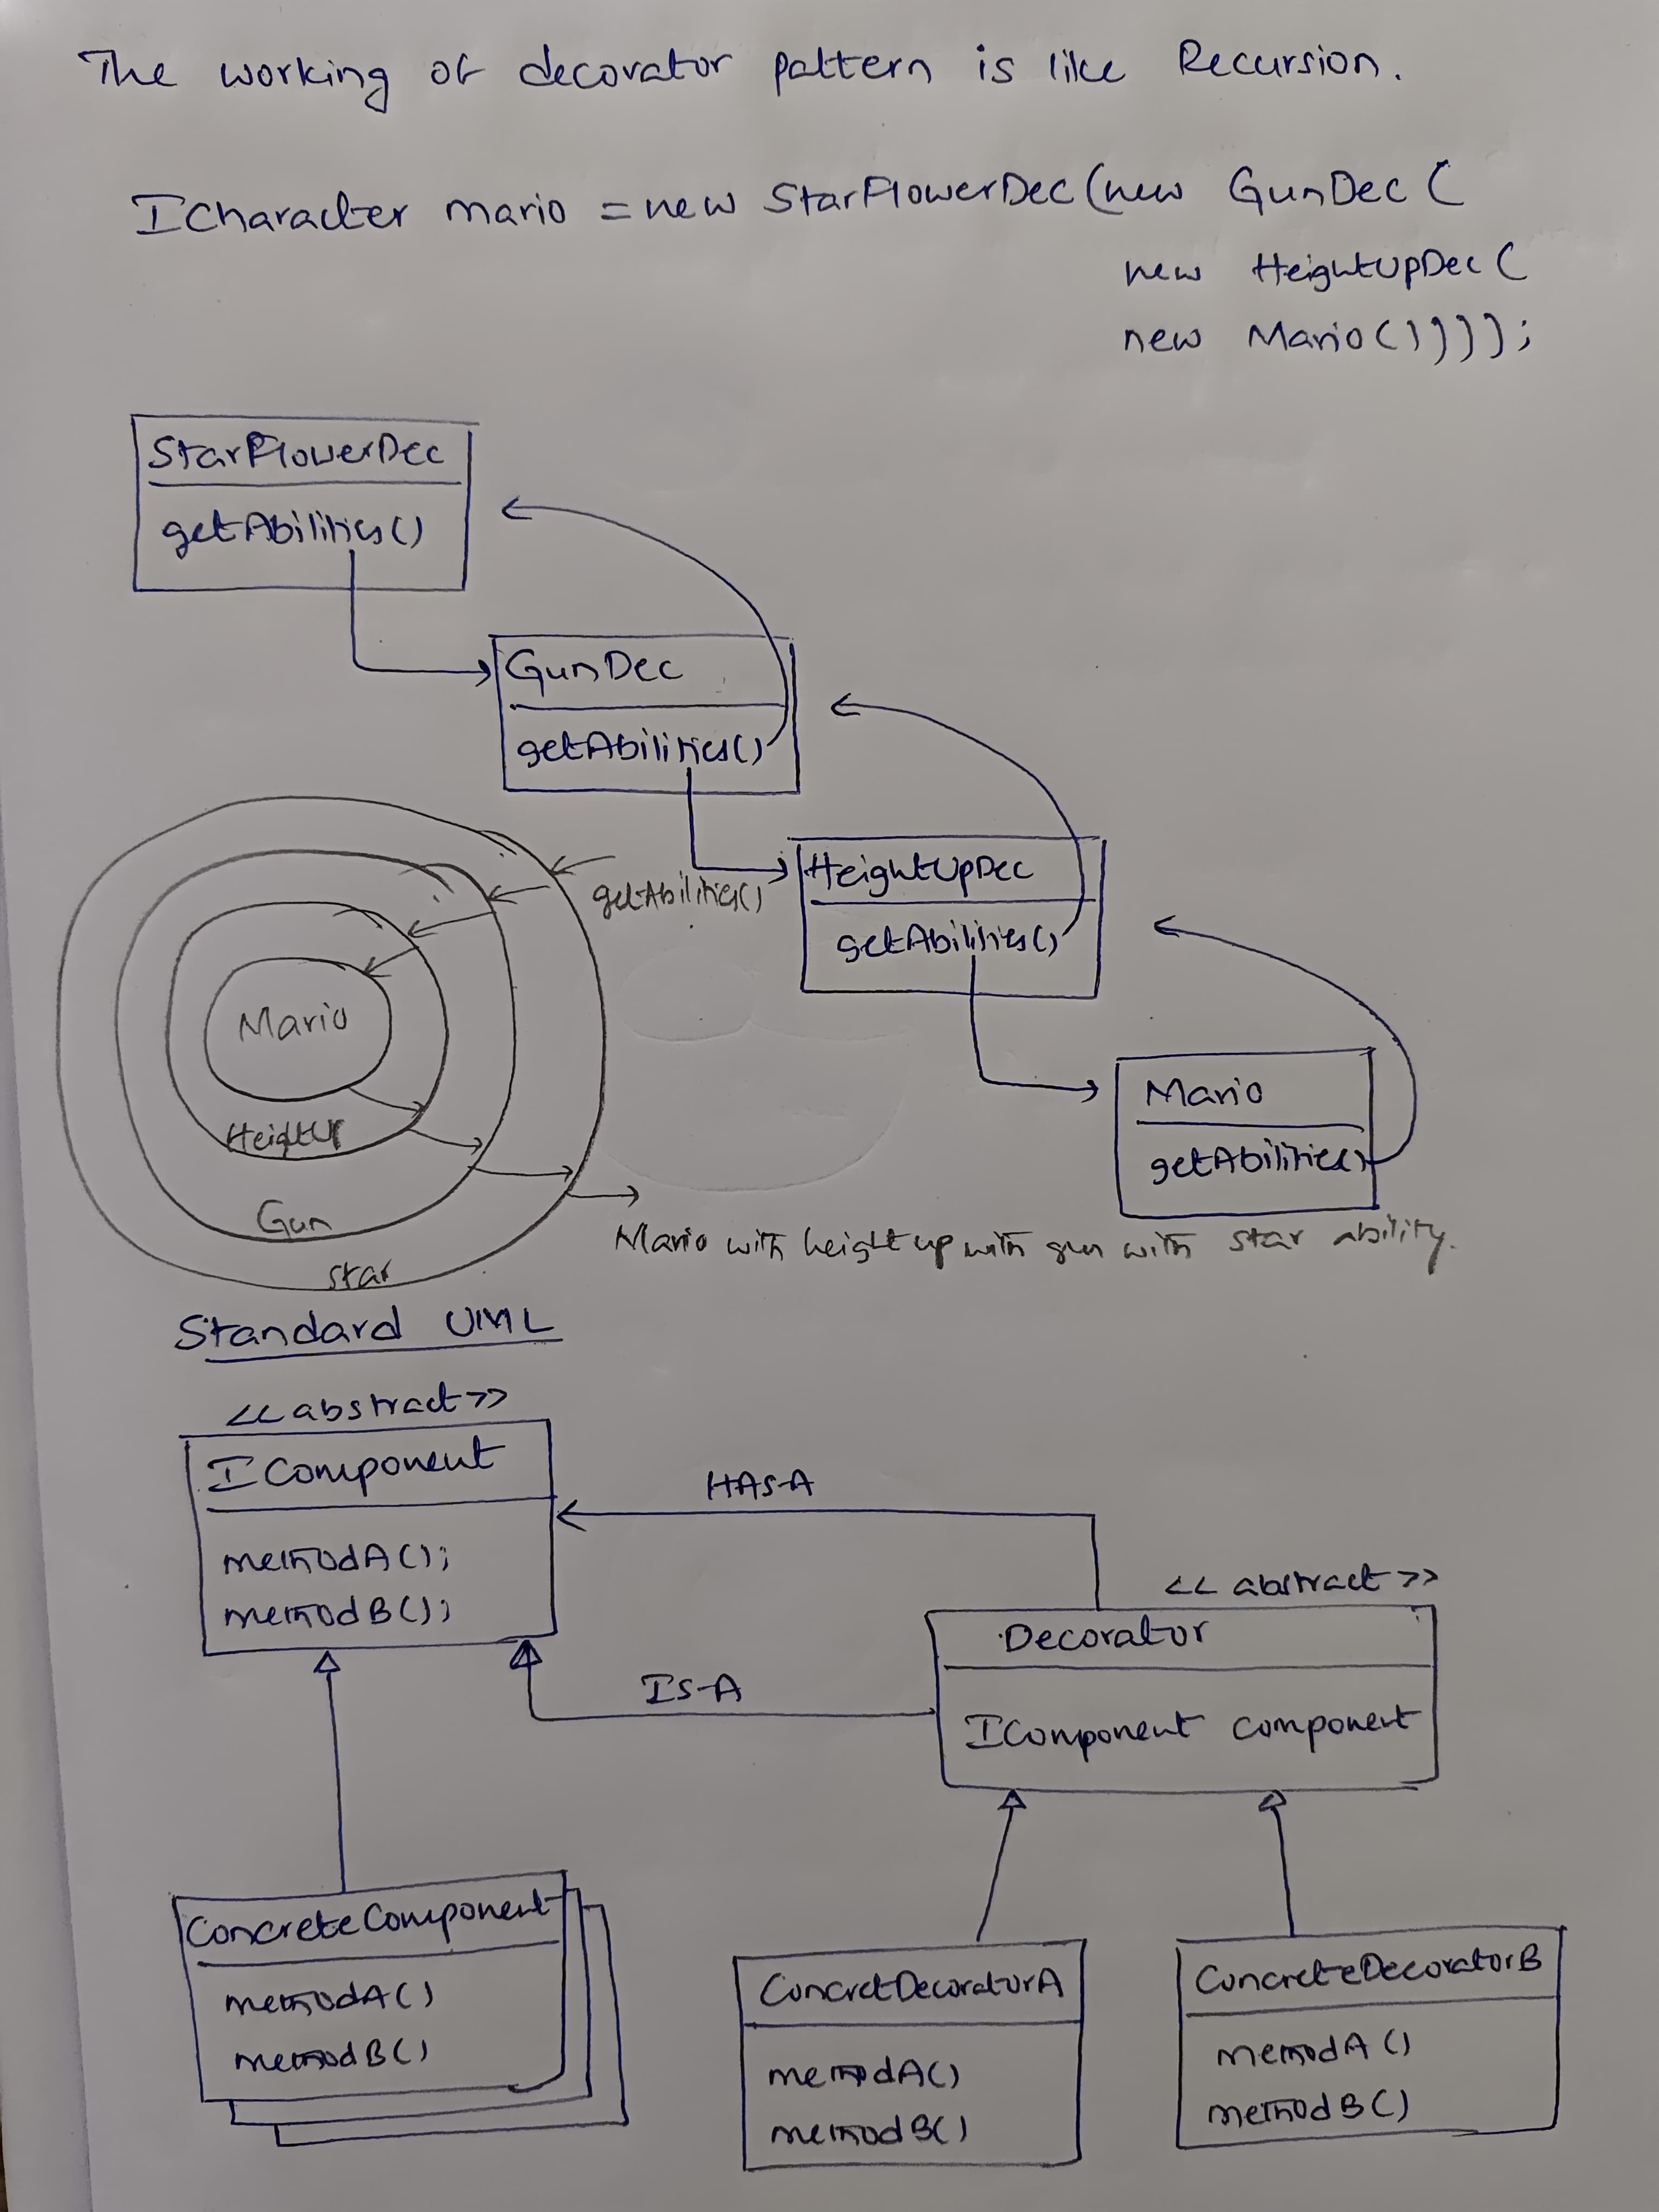 The working of decorator pattern is like Recursion.
ICharacter mario = new StarFlowerDec(new GunDec(
new HeightUpDec(
new Mario())));
StarFlowerDec
getAbilities()
GunDec
getAbilities()
HeightUpDec
getAbilities()
Mario
getAbilities()
getAbilities()
Mario
HeightUp
Gun
star
Mario with height up with gun with star ability.
Standard UML
<<abstract>>
IComponent
methodA();
methodB();
HAS-A
IS-A
<< abstract >>
Decorator
IComponent component
ConcreteComponent
methodA()
methodB()
ConcretDecoratorA
methodA()
methodB()
ConcreteDecoratorB
methodA()
methodB()